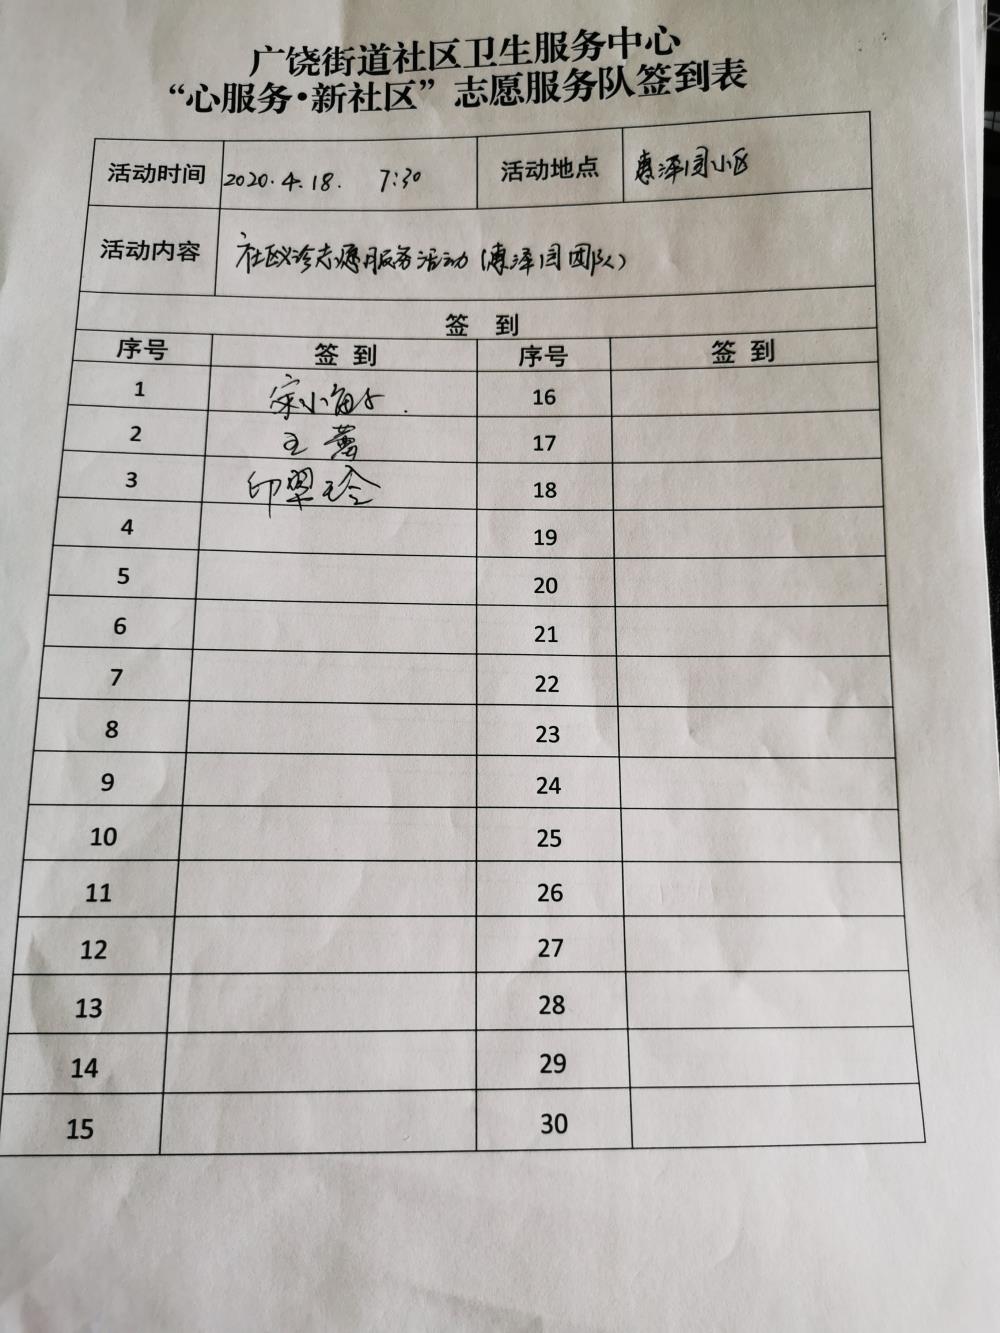 广饶街道社区卫生服务中心
“心服务·新社区”志愿服务队签到表
活动时间 2020.4.18. 7:30 活动地点 惠泽园小区
活动内容 社区义诊志愿服务活动(惠泽园团队)
签 到
序号 签到 序号 签到
1 宋小 16
2 王 17
3 印翠玲 18
4 19
5 20
6 21
7 22
8 23
9 24
10 25
11 26
12 27
13 28
14 29
15 30